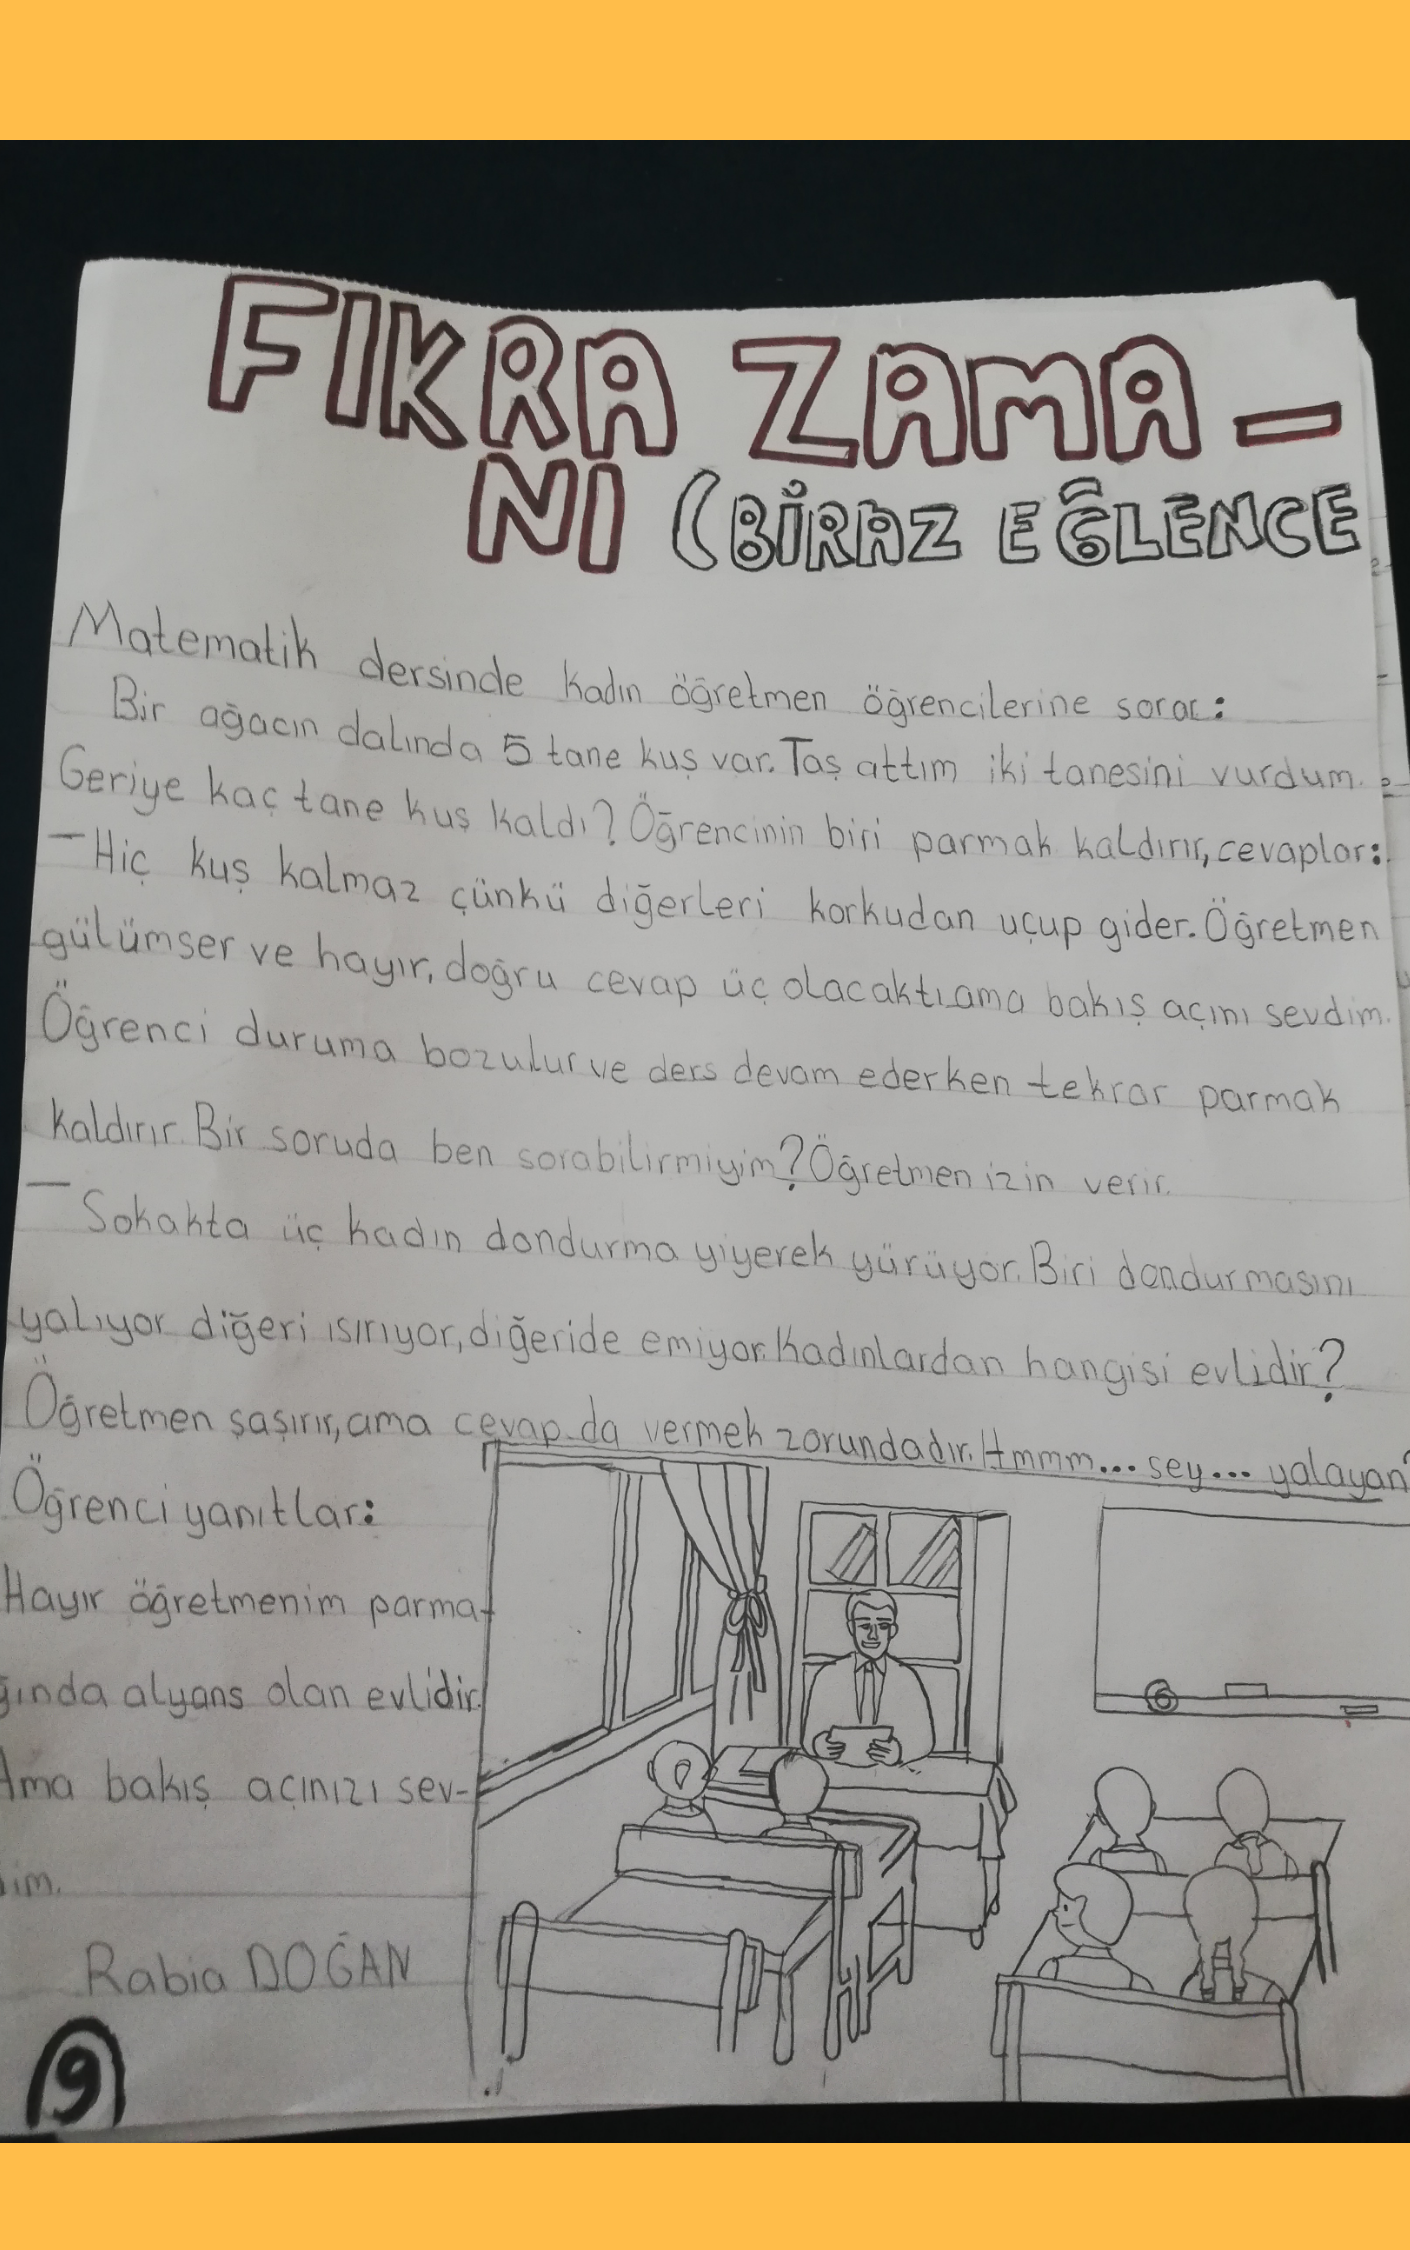 FIKRA ZAMA-
NI (BİRAZ EĞLENCE
Matematik dersinde kadın öğretmen öğrencilerine sorar:
Bir ağacın dalında 5 tane kuş var. Taş attım iki tanesini vurdum.
Geriye kaç tane kuş kaldı? Öğrencinin biri parmak kaldırır, cevaplar:
- Hiç kuş kalmaz çünkü diğerleri korkudan uçup gider. Öğretmen
gülümser ve hayır, doğru cevap üç olacaktı ama bakış açını sevdim.
Öğrenci duruma bozulur ve ders devam ederken tekrar parmak
kaldırır. Bir soruda ben sorabilirmiyim? Öğretmen izin verir.
- Sokakta üç kadın dondurma yiyerek yürüyor. Biri dondurmasını
yalıyor diğeri ısırıyor, diğeride emiyor. Kadınlardan hangisi evlidir?
Öğretmen şaşırır, ama cevap da vermek zorundadır. Hmmm... şey... yalayan?
Öğrenci yanıtlar:
Hayır öğretmenim parma-
ğında alyans olan evlidir.
Ama bakış açınızı sev-
dim.
Rabia DOĞAN
9